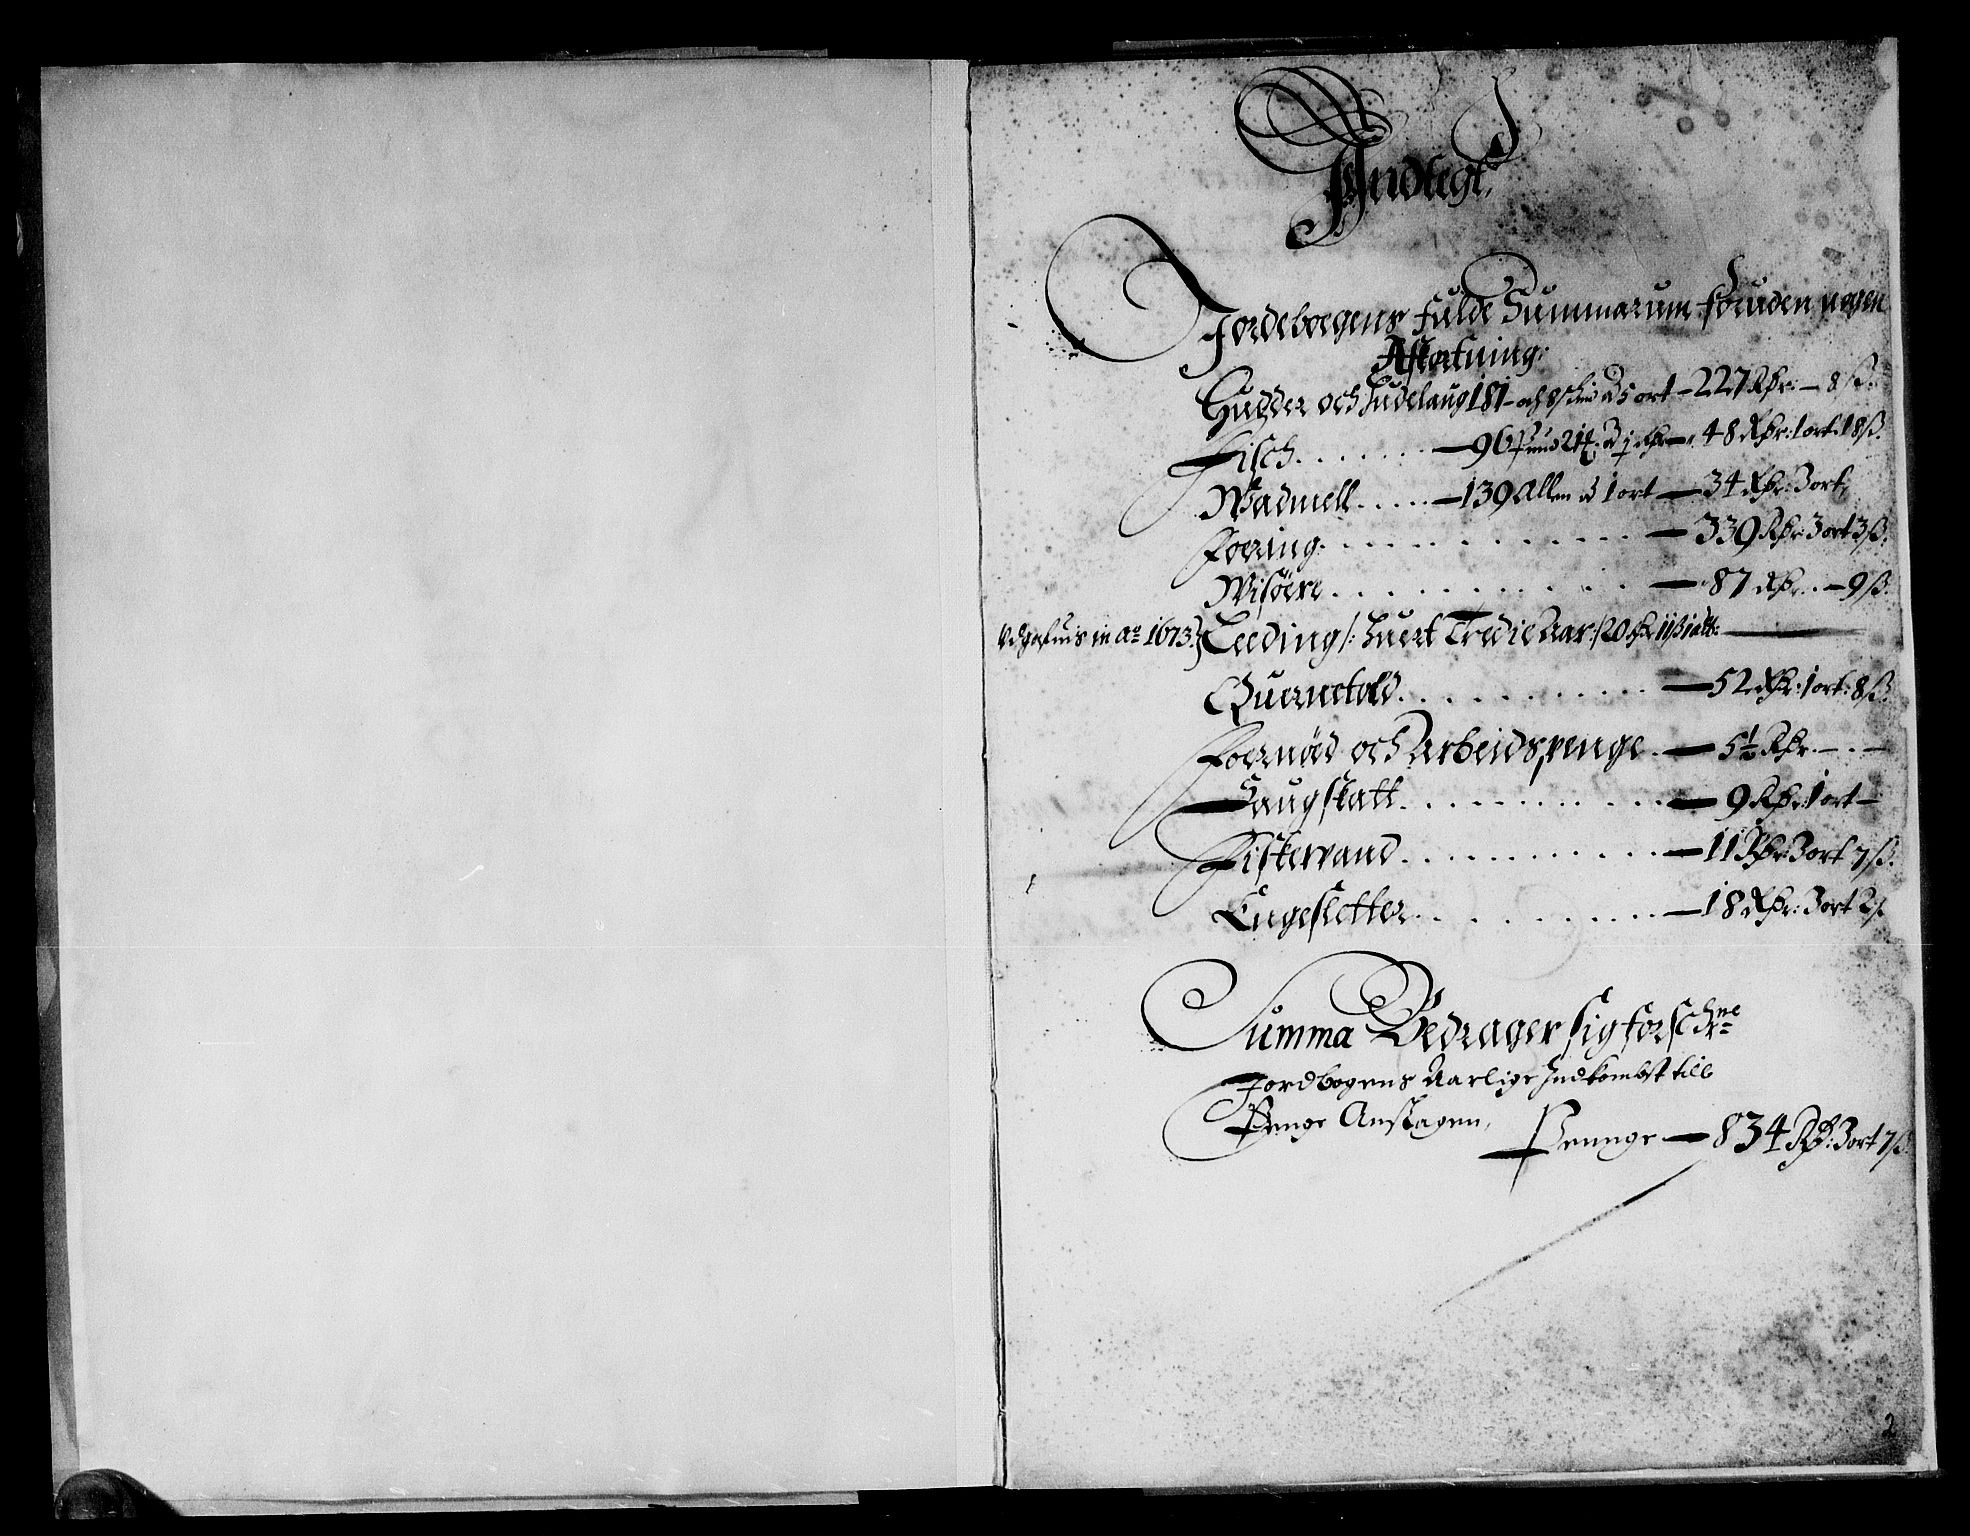 Indtegt,
Jordebogens fulde Summarum foruden nogen
Afkortning:
Hudder och Hudelaug 181 - och 8 skind a 5 ort - 227 Rdr: - 8 ß:
Fisch. . . . . . . - 96 pund 21 a j Rdr - 48 Rdr: 1 ort: 18 ß.
Wadmell. . . . . - 139 Allen a 1 ort - 34 Rdr: 3 ort,
Foering. . . . . . . . . . . - 339 Rdr: 3 ort 3 ß:
Wisøere. . . . . . . . . . . - 87 Rdr. - 9 ß.
in ao 1673. } Leeding /: huert Tredie Aar: / 20 Rdr 11 ß
Quernetold. . . . . . . . . . - 52 Rdr: 1 ort: 8 ß.
Foernød och Arbeidspenge. - 5 1/2 Rdr. - . -
Laugskatt. . . . . . . . . . - 9 Rdr: 1 ort -
Fiskevand. . . . . . . . . . - 11 Rdr: 3 ort 7 ß.
Engesletter. . . . . . . . . - 18 Rdr: 3 ort 2 ß.
Summa Bedrager sig forschne
Jordbogens Aarlige Indkombst till
Penge Anslagen,
Pennge - 834 Rdr: 3 ort 7 ß.
2